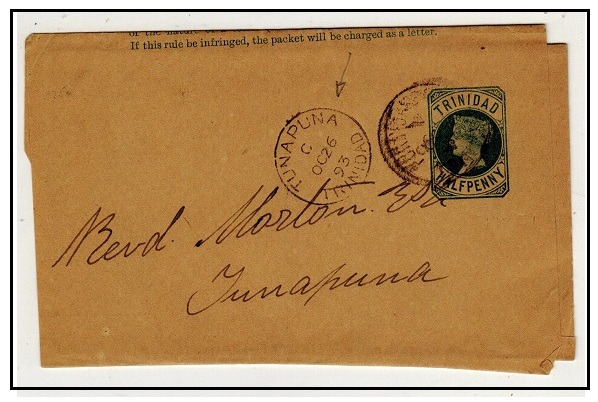 If this rule be infringed, the packet will be charged as a letter.
TUNAPUNA
C
OC 26
93
TRINIDAD
TRINIDAD
HALFPENNY
Revd. Morton. Esq
Tunapuna